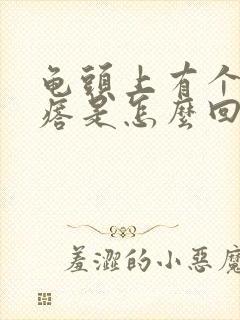 龟頭上有个
痞是怎麼回
羞澀的小惡魔